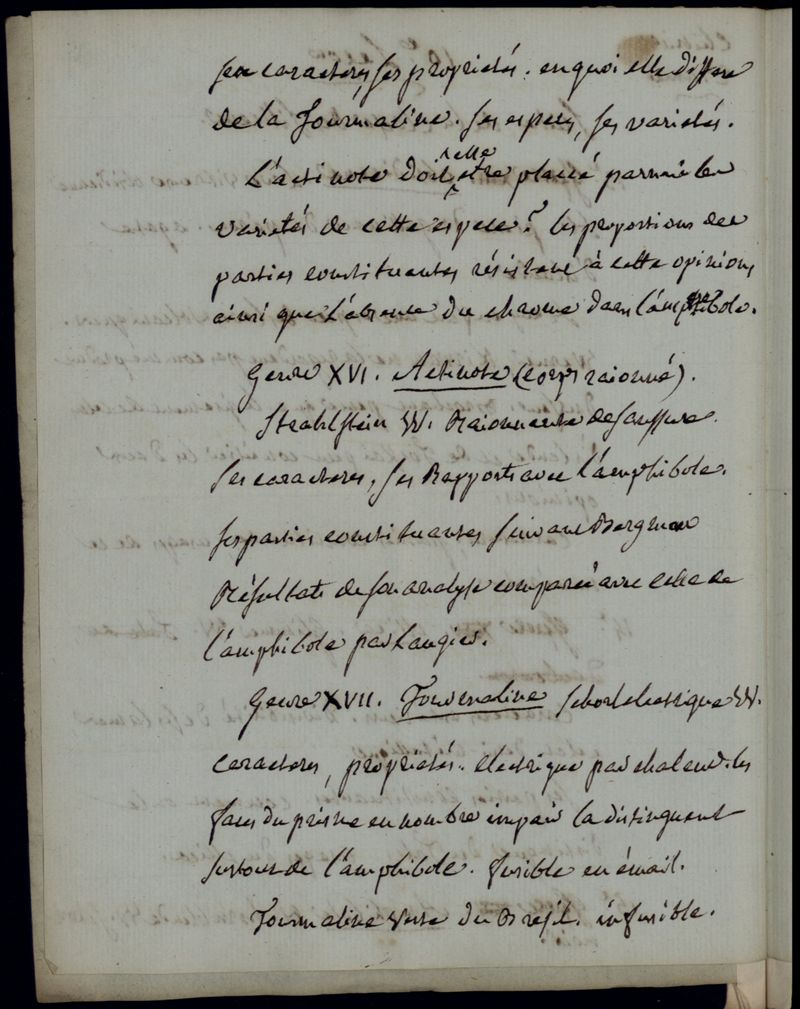 ses caracteres, ses proprietés. en quoi elle differe
de la Tourmaline. ses especes, ses varietés.
L'actinote doit elle etre placée parmi les
varietés de cette espece? les proportions des
parties constituantes résistent à cette opinion,
ainsi que l'absence du chrome dans l'amphibole.
Genre XVI. Actinote (corps raionné).
Strahlstein W. Raionnante de Saussure.
ses caracteres, ses Rapports avec l'amphibole.
ses parties constituantes suivant Bergman
Résultats de son analyse comparée avec celle de
l'amphibole par Laugier.
Genre XVII. Tourmaline schorl electrique W.
caracteres, proprietés. electrique par chaleur. les
faces du prisme en nombre impair la distinguent
surtout de l'amphibole. fusible en émail.
Tourmaline verte du Bresil. infusible.